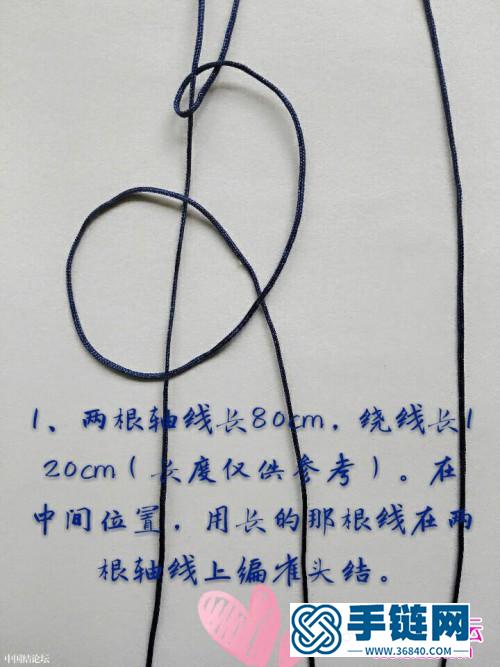 1、两根轴线长80cm，绕线长1
20cm（长度仅供参考）。在
中间位置，用长的那根线在两
根轴线上编雀头结。
手链网
www.36840.com
中国结论坛